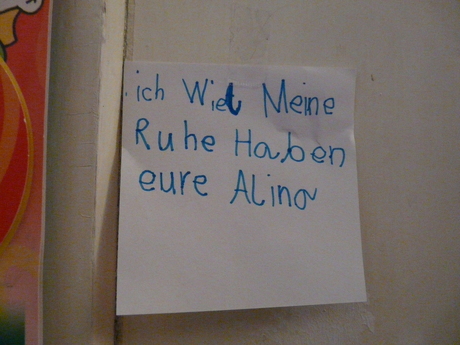 ich Wiel Meine
Ruhe Haben
eure Alina